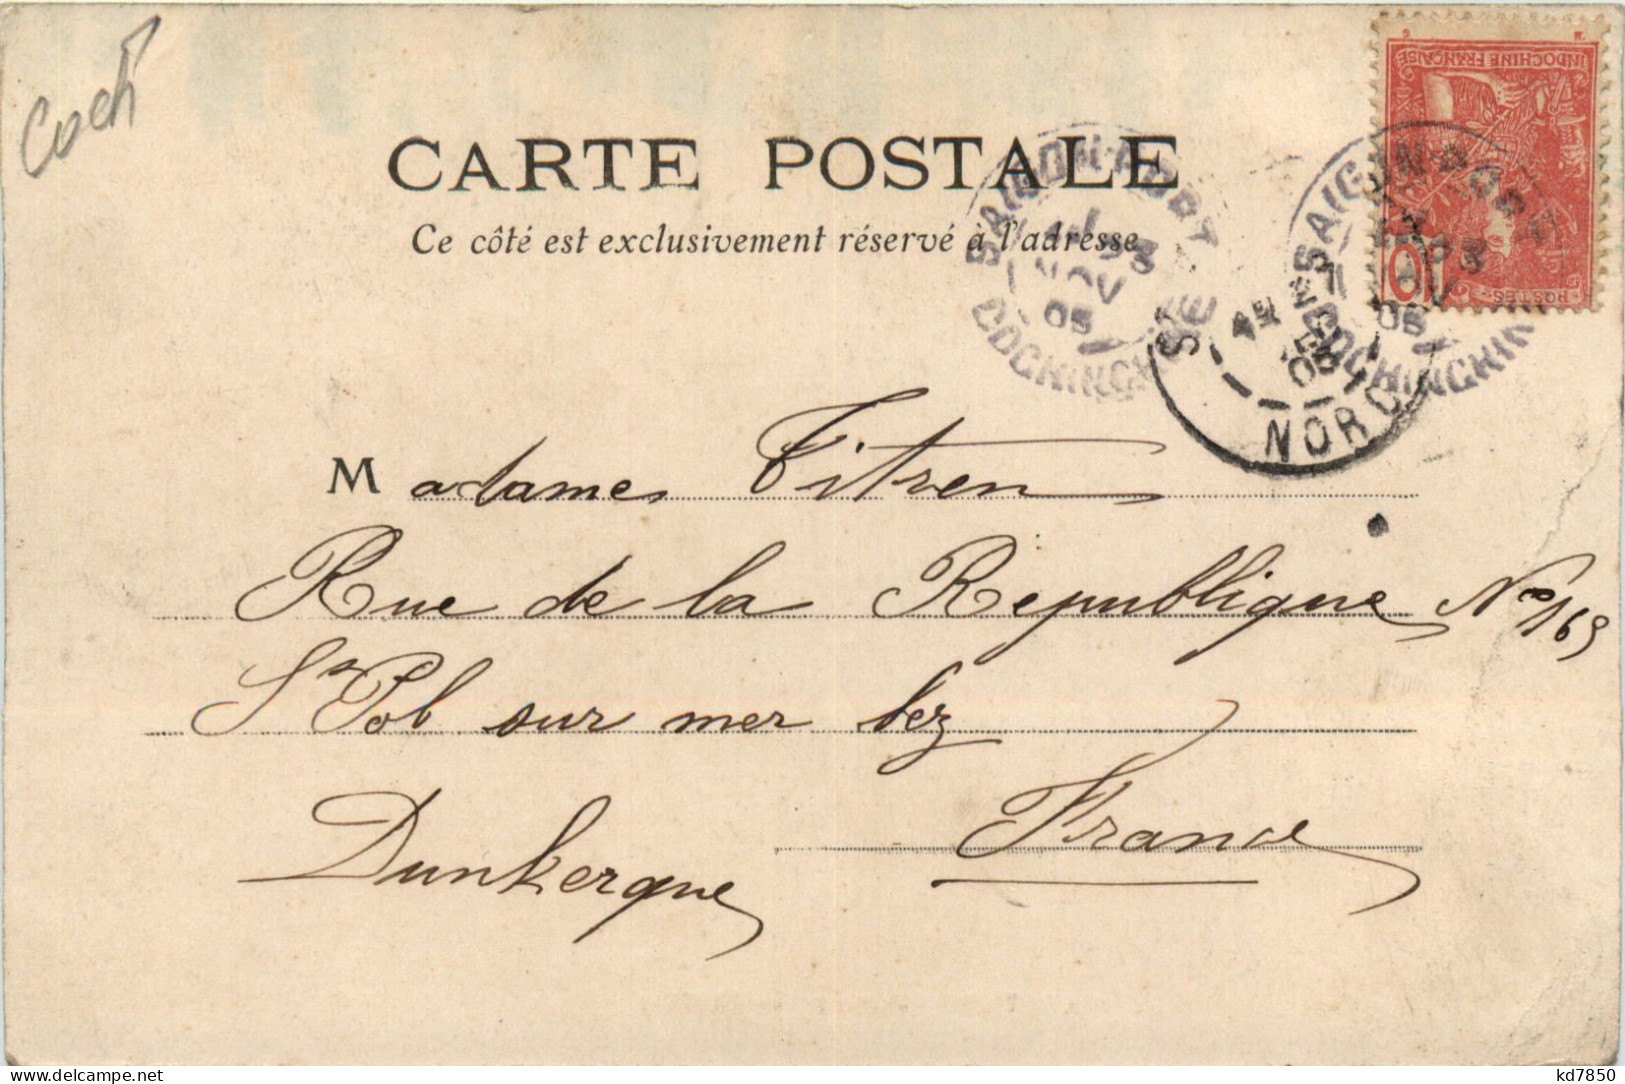 Coch
CARTE POSTALE
Ce côté est exclusivement réservé à l'adresse
INDOCHINE FRANÇAISE
POSTES
10
SAIGON-PORT
NOV
05
COCHINCHINE
SAIGON-PORT
NOV
05
COCHINCHINE
NORD
Madame Titren
Rue de la Republique No 169
St Pol sur mer lez
Dunkerque France
kd7850